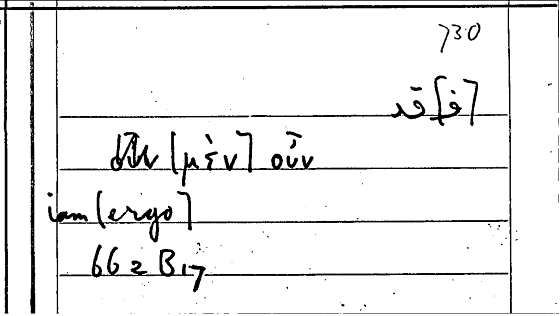 730
[ف] قد
[μὲν] οὖν
iam [ergo]
662 B 17